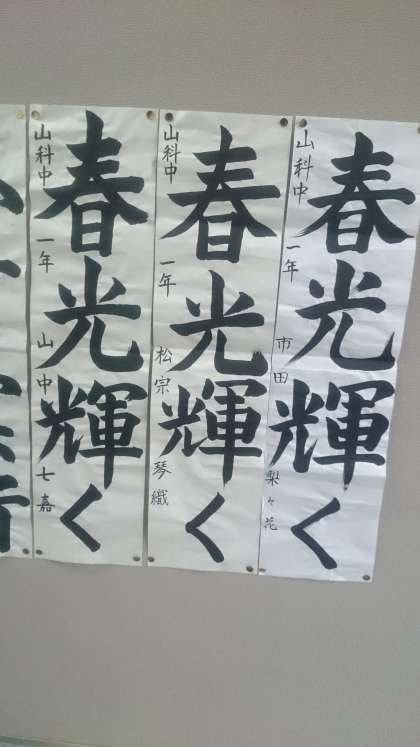 春光輝く
山科中 一年 市田 梨々花
春光輝く
山科中 一年 松宗 琴織
春光輝く
山科中 一年 山中 七嘉